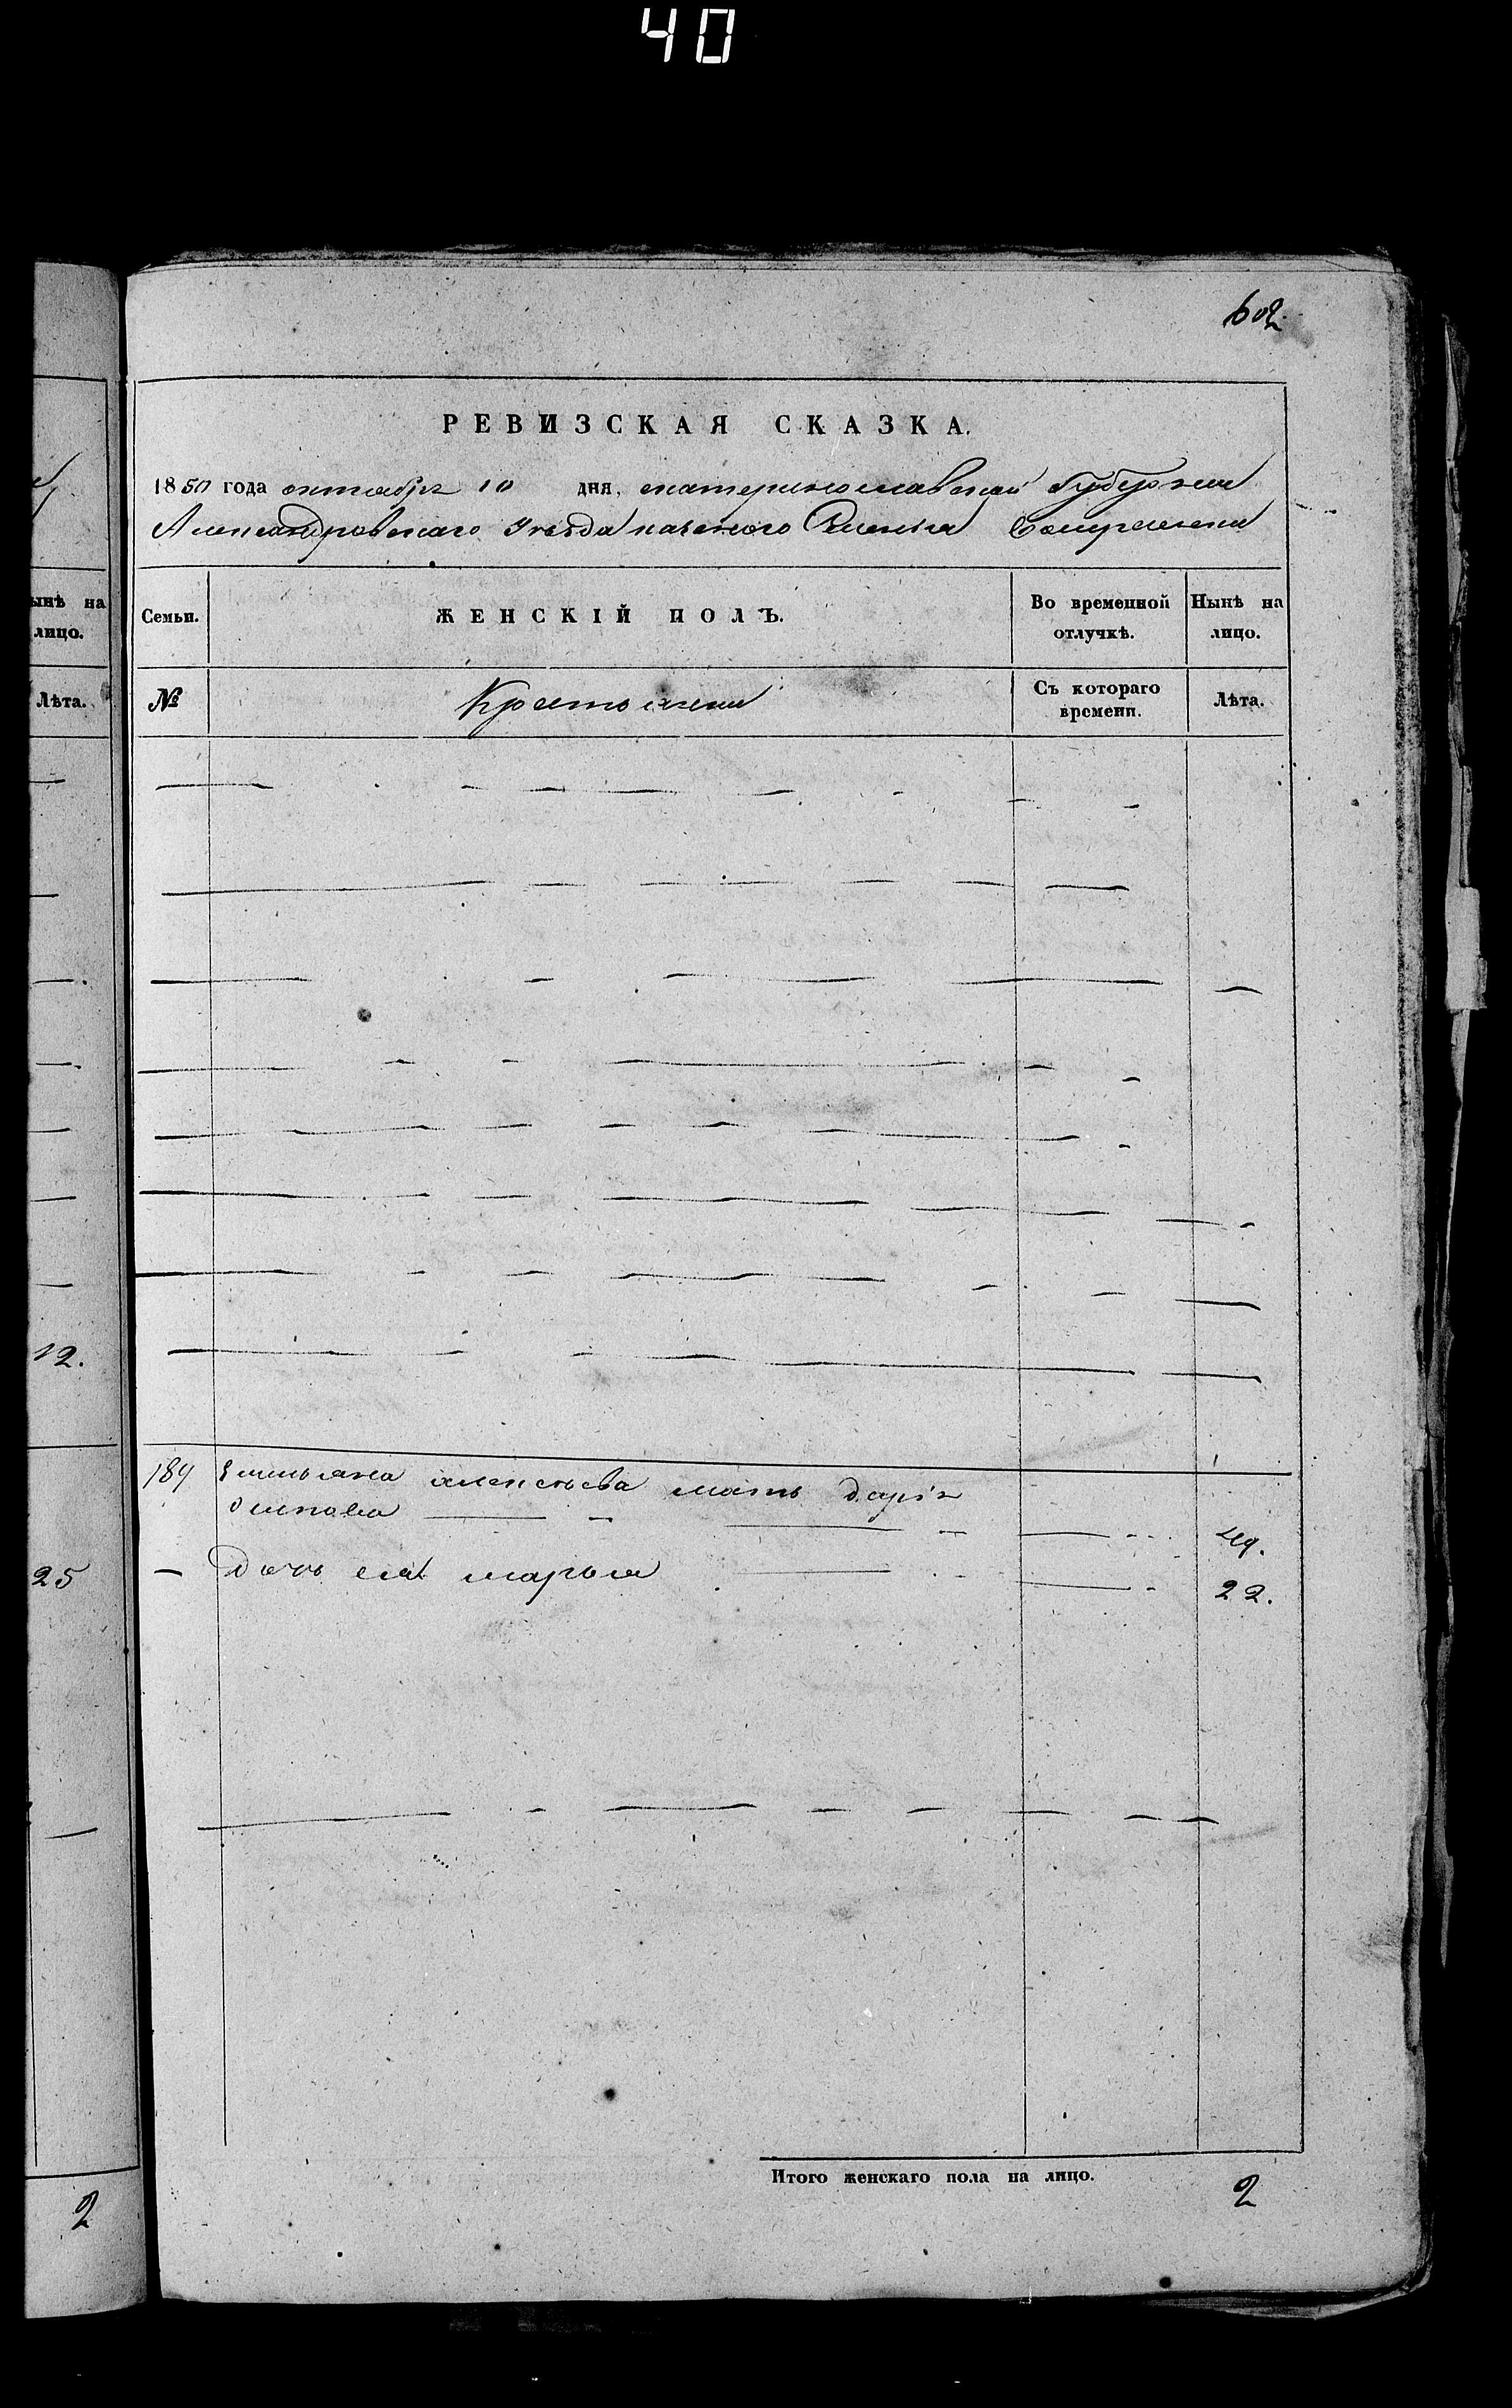 40
602
РЕВИЗСКАЯ СКАЗКА.
1850 года октября 10 дня, екатеринославской Губернии
Александровскаго Уезда казенного Селения
ынѣ на лицо.
Семьи.
ЖЕНСКІЙ ПОЛЪ.
Во временной отлучкѣ.
Нынѣ на лицо.
Лѣта.
№
Крестьяне
Съ котораго времени.
Лѣта.
12.
189 Емельяна алексеева мать дарія
Осипова 49.
25
— Дочь ея марья 22.
Итого женскаго пола на лицо. 2
2